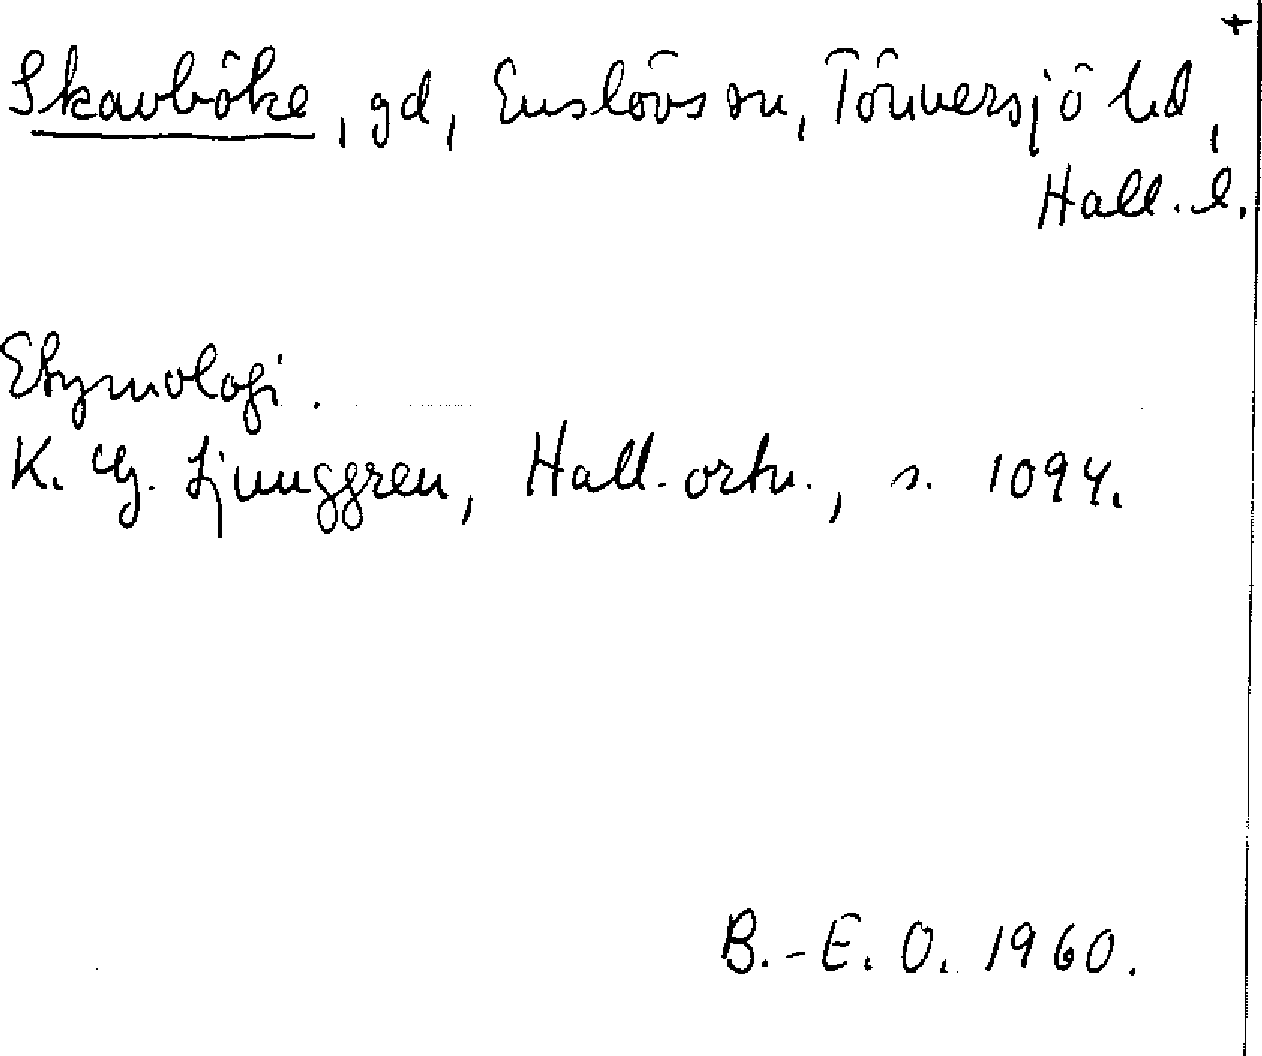 +
Skavböke, gd, Enslövs sn, Tönnersjö hd,
Hall. l.
Etymologi.
K. G. Ljunggren, Hall. ortn., s. 1094.
B.-E. O. 1960.